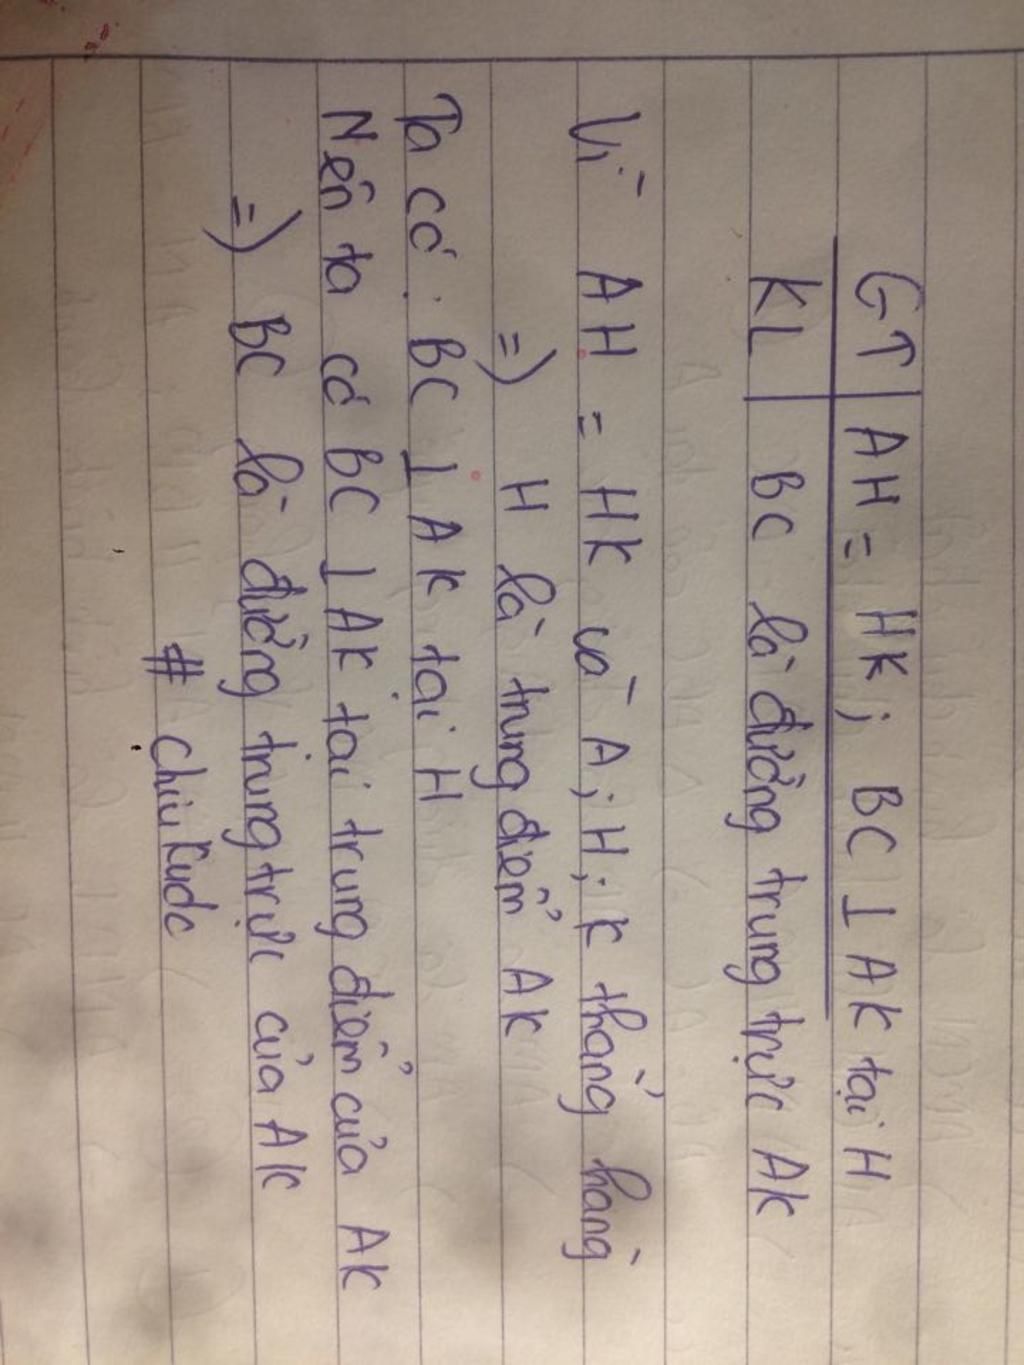 GT | AH = HK; BC ⊥ AK tại H
KL | BC là đường trung trực AK
Vì AH = HK và A; H; K thẳng hàng
=) H là trung điểm AK
Ta có: BC ⊥ AK tại H
Nên ta có BC ⊥ AK tại trung điểm của AK
=) BC là đường trung trực của AK